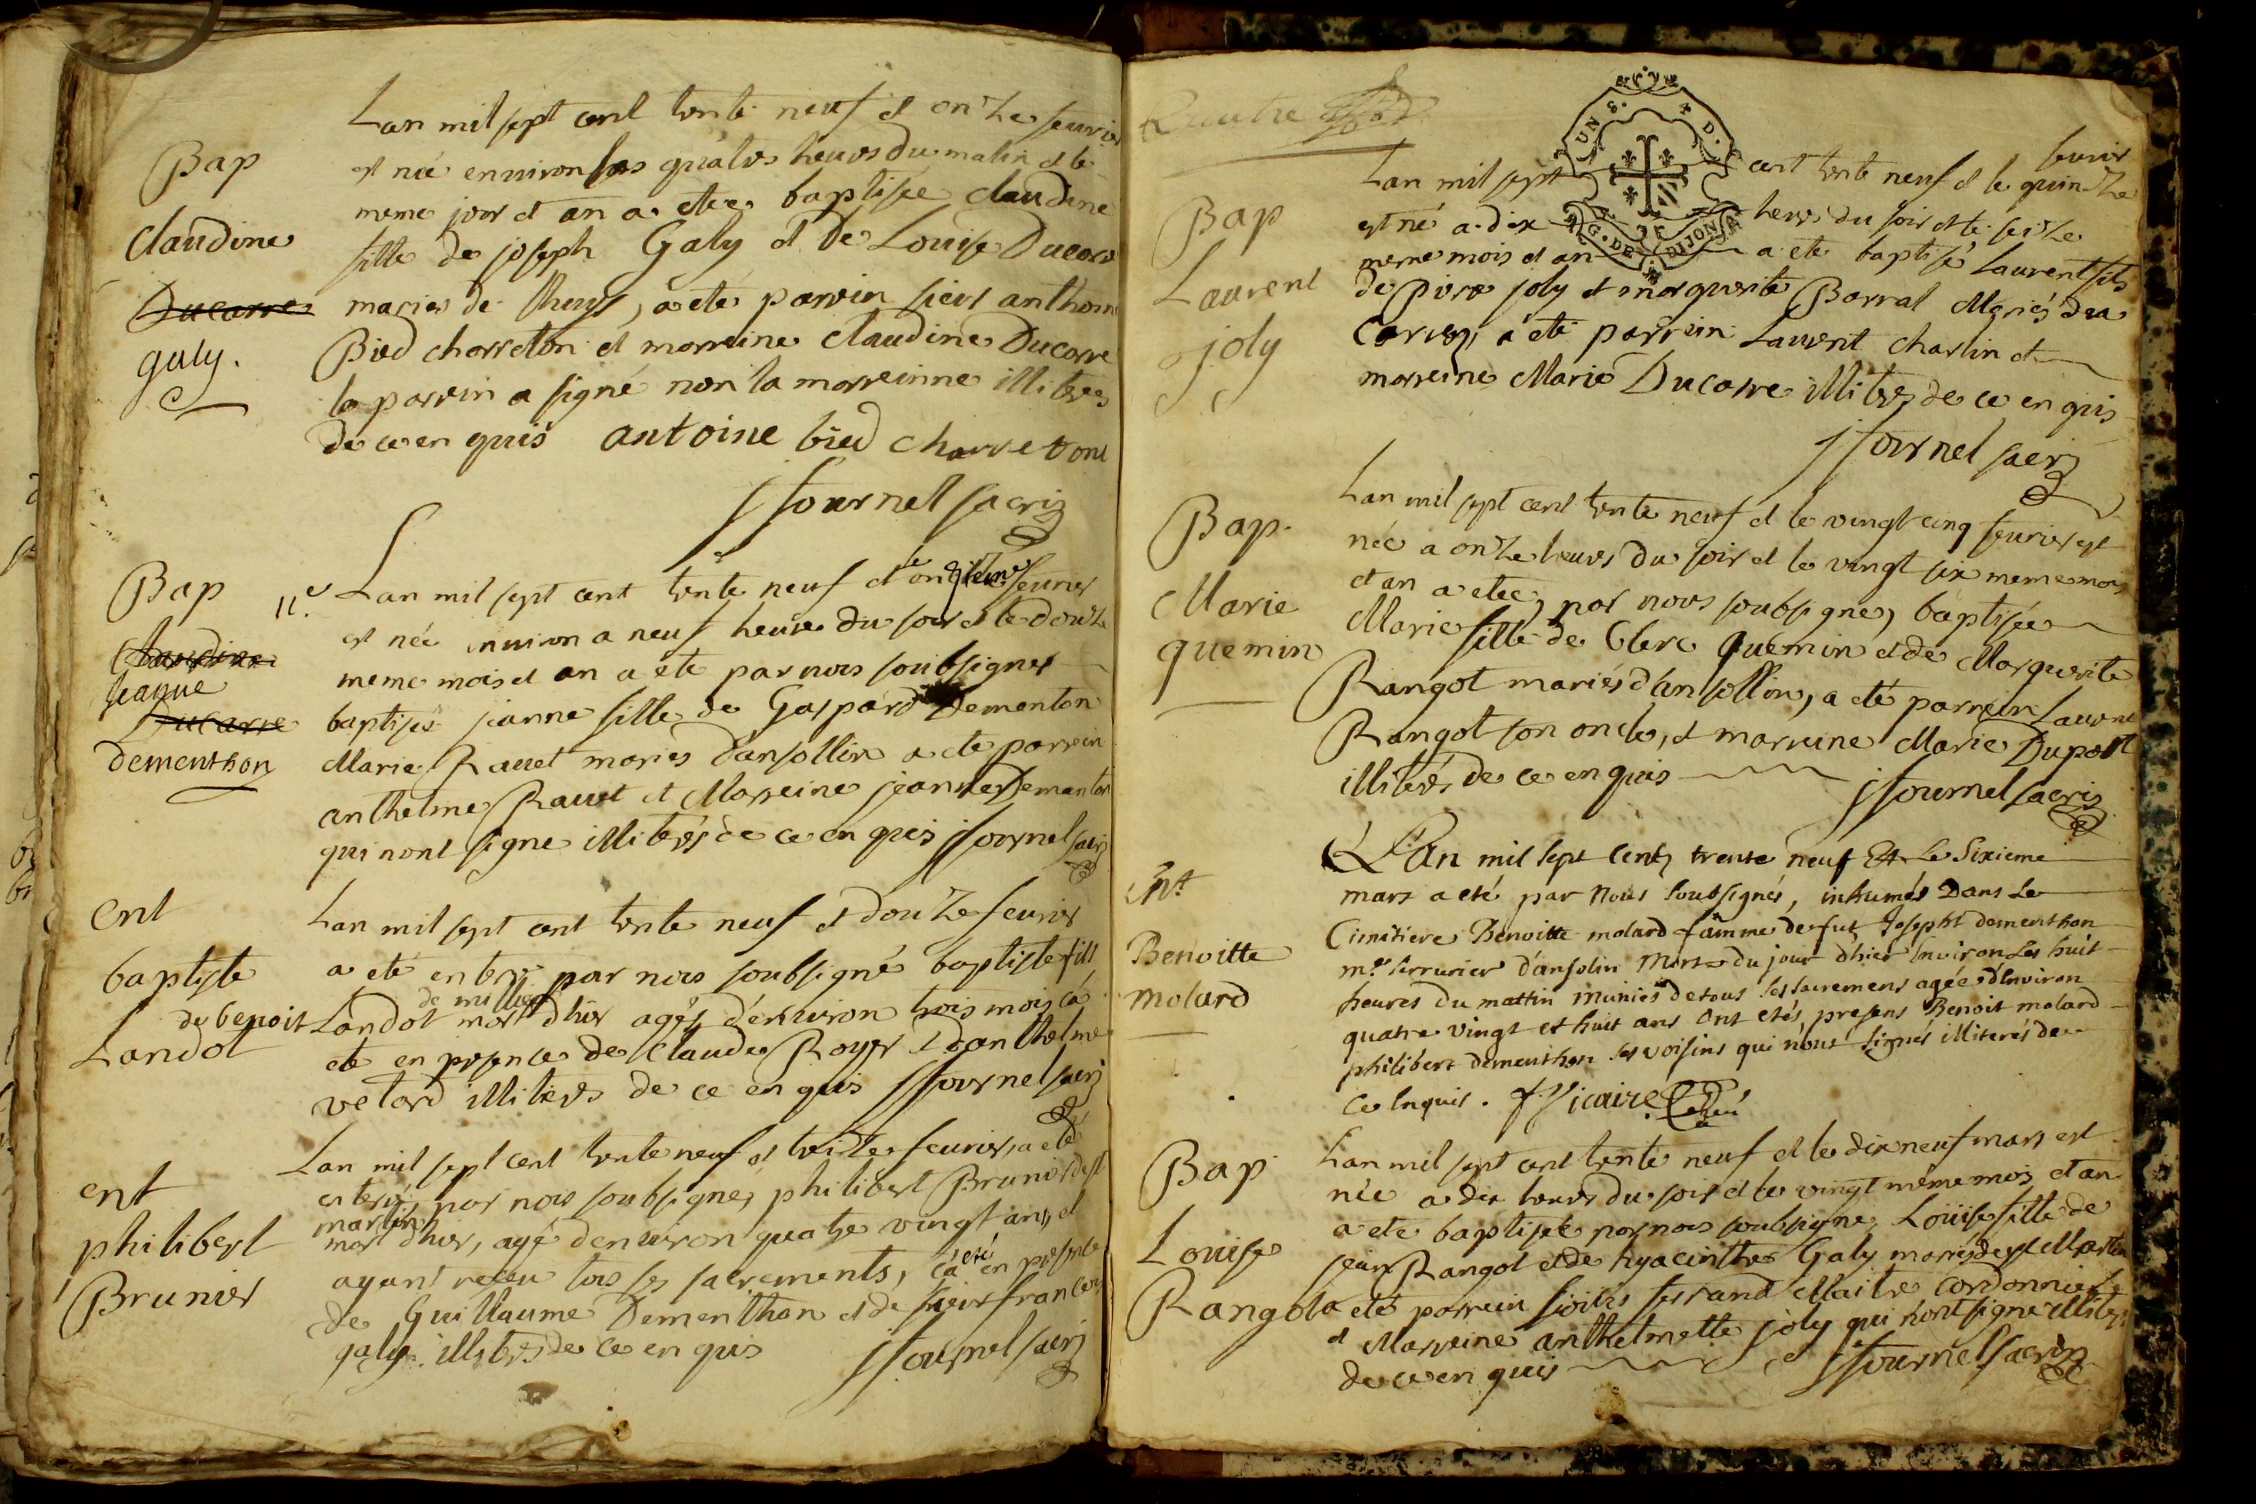 Bap
Claudine
Ducarre
galy.
Lan mil sept cent trente neuf et onze feurier
est née enuiron les quatres heures du matin et le
meme jour et an a etée baptisée claudine
fille de joseph Galy et De Louise Ducarre
mariés de , a eté parrein sieur anthoine
Bied charreton et marreine Claudine Ducarre
le parrein a signé non la marreinne illitérés
de ce en quis antoine bied charretont
jfournel sacriz
Bap
Claudine
jeanne
Ducarre
dementhon
11e
Lan mil sept cent trente neuf et le onzieme feurier
est née enuiron a neuf heures du soir et le douze
meme mois et an a eté par nous soubsignes
baptisés jeanne fille de Gaspard Dementon
Marie Rauet mariés dansollin a ete parrein
anthelme Rauet et Marreine jeanne Dementon
qui nont signe illiterés de ce en quis jfournel sacriz
ent
baptiste
de benoit
Landot
Lan mil sept cent trente neuf et douze feurier
a eté enterré par nous soubsigné baptiste fils
de millieu
Landot mort dhier agés d'enuiron trois mois ca
eté en presence de Claude Royer et danthelme
vetard illiterés de ce en quis jfournel sacriz
ent
philibert
Brunier
Lan mil sept cent trente neuf et treize feurier, a eté
enterré, par nous soubsignes philibert Brunier de st
martin
mort dhier, agé denuiron quatre vingt ans, et
ayant receu tous ses sacrements, ca eté en presence
de Guillaume Dementhon et de sieur francois
galy. illiterés de ce en quis jfournel sacriz
Bap
Laurent
joly
UNS. D.
G. DE DIJON
feurier
Lan mil sept cent trente neuf et le quinze
est né a dix heures du soir et le seize
meme mois et an a eté baptisé Laurent fils
de Piere joly et marguerite Barral Mariés du
Carroz, a eté parrein Laurent charlin et
marreine Marie Ducarre illiterés de ce en quis
jfournel sacriz
Bap.
Marie
quemin
Lan mil sept cent trente neuf et le vingt cinq feurier est
née a onze heures du soir et le vingt six meme mois
et an a etée, par nous soubsignes, baptisée
Marie fille de Clerc Quemin et de Marguerite
Rangot mariés d'ansollin, a eté parrein Laurent
Rangot son oncle, et marreine Marie Dupont
illiterés de ce en quis jfournel sacriz
Ent
Benoitte
molard
L'an mil sept Centz trente neuf Et Le Sixieme
mars a eté par Nous soubsignés, inhumés Dans Le
Cimitiere Benoitte molard fámme de fut Josepht dementhon
me serrurier d'ansolin Morte du jour d'hier Environ Les huit
heures du mattin Munies de tous ses sacremens agée d'Environ
quatre vingt et huit ans Ont etés, presens Benoit molard
philibert dementhon ses voisins qui n'ont signés illiterés de
Ce Enquis. Vicaire
Bap
Louise
Rangot
Lan mil sept cent trente neuf et le dix neuf mars est
née a dix heures du soir et le vingt même mois, et an
a ete baptisée par nous soubsignes, Loüise fille de
jean Rangot et de hyacinthe Galy mariés de st Martin
a eté parrein ferrand Maitre Cordonnier
et Marreine anthelmette joly qui n'ont signe illiterés
de ce en quis jfournel sacriz